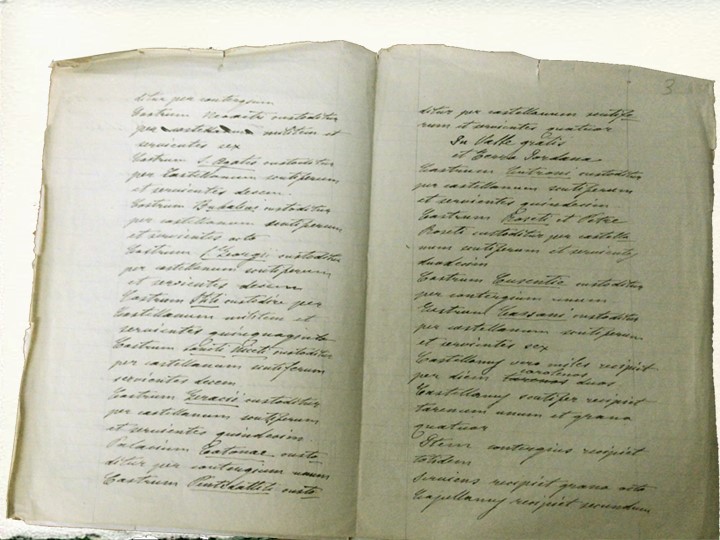 ditur per contergium
Castrum Neocstri custoditur
per castellanum militem et
servientes sex
Castrum S. Agatis custoditur
per Castellanum scutiferum
et servientes decem
Castrum Bubalini custoditur
per castellanum scutiferum
et servientes octo
Castrum S. Georgii custoditur
per castellanum scutiferum
et servientes decem
Castrum Stili custodire per
Castellanum militem et
servientes quinquaginta
Castrum Sancti Niceti custoditur
per castellanum scutiferum
servientes decem
Castrum Geracii custoditur
per castellanum scutiferum
et servientes quindecim
Palacium Cotonae custo
ditur per contergium unum
Castrum Pentidattili custo
3
ditur per castellanum scutife
rum et servientes quatuor
In Valle gratis
et Terra Iordana
Castrum custoditur
per castellanum scutiferum
et servientes quindecim
Castrum Roseti et Petre
Roseti custoditur per castella
num scutiferum et servientes
duodecim
Castrum Cusentie custoditur
per contergium unum
Castrum Cassani custoditur
per castellanum scutiferum
et servientes sex
Castellanus vero miles recipiet
carolinos
per diem tarenos duos
Castellanus scutifer recipiet
tarenum unum et grana
quatuor
Item contergius recipiet
totidem
Serviens recipiet grana octo
Capellanus recipiet secundum